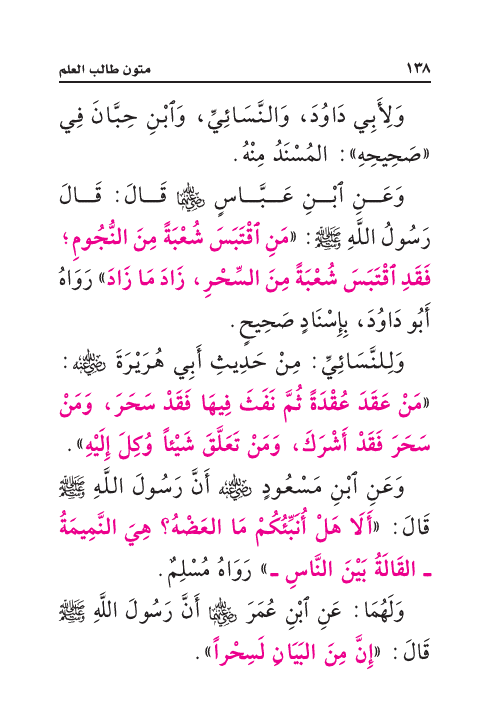 ١٣٨ متون طالب العلم
وَلِأَبِي دَاوُدَ، وَالنَّسَائِيِّ، وَٱبْنِ حِبَّانَ فِي
«صَحِيحِهِ»: المُسْنَدُ مِنْهُ.
وَعَـــنِ ٱبْـــنِ عَـبَّـــاسٍ رضي الله عنهما قَــالَ: قَــالَ
رَسُولُ اللَّهِ ﷺ: «مَنِ ٱقْتَبَسَ شُعْبَةً مِنَ النُّجُومِ؛
فَقَدِ ٱقْتَبَسَ شُعْبَةً مِنَ السِّحْرِ، زَادَ مَا زَادَ» رَوَاهُ
أَبُو دَاوُدَ، بِإِسْنَادٍ صَحِيحٍ.
وَلِلنَّسَائِيِّ: مِنْ حَدِيثِ أَبِي هُرَيْرَةَ رضي الله عنه:
«مَنْ عَقَدَ عُقْدَةً ثُمَّ نَفَثَ فِيهَا فَقَدْ سَحَرَ، وَمَنْ
سَحَرَ فَقَدْ أَشْرَكَ، وَمَنْ تَعَلَّقَ شَيْئاً وُكِلَ إِلَيْهِ».
وَعَنِ ٱبْنِ مَسْعُودٍ رضي الله عنه أَنَّ رَسُولَ اللَّهِ ﷺ
قَالَ: «أَلَا هَلْ أُنَبِّئُكُمْ مَا العَضْهُ؟ هِيَ النَّمِيمَةُ
ـ القَالَةُ بَيْنَ النَّاسِ ـ» رَوَاهُ مُسْلِمٌ.
وَلَهُمَا: عَنِ ٱبْنِ عُمَرَ رضي الله عنهما أَنَّ رَسُولَ اللَّهِ ﷺ
قَالَ: «إِنَّ مِنَ البَيَانِ لَسِحْراً».